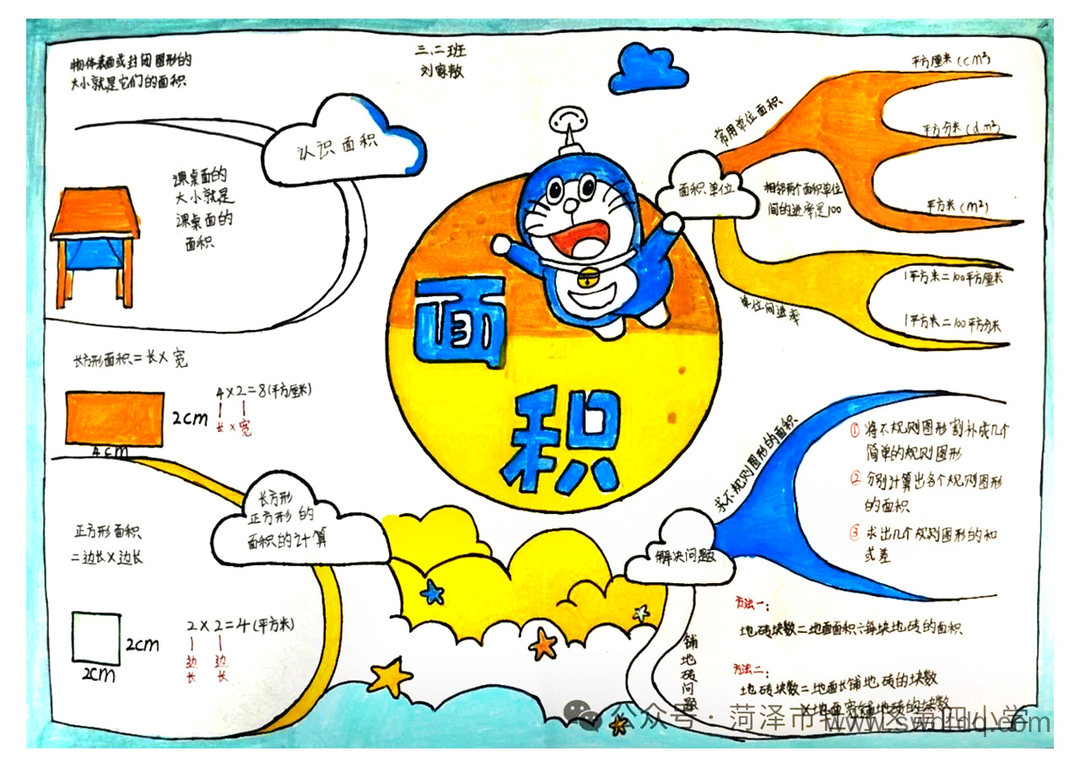 物体表面或封闭图形的
大小就是它们的面积
三.二班
刘家敖
认识面积
课桌面的
大小就是
课桌面的
面积
面积
长方形面积=长×宽
2cm
4cm
4×2=8(平方厘米)
长×宽
长方形
正方形的
面积的计算
正方形面积
=边长×边长
2cm
2cm
2×2=4(平方米)
边 边
长 长
面积单位
常用单位面积
平方厘米(cm²)
平方分米(dm²)
平方米(m²)
相邻两个面积单位
间的进率是100
单位间进率
1平方米=100平方厘米
1平方米=100平方分米
解决问题
求不规则图形的面积
①将不规则图形割补成几个
简单的规则图形
②分别计算出各个规则图形
的面积
③求出几个规则图形的和
或差
铺地砖问题
方法一:
地砖块数=地面面积÷每块地砖的面积
方法二:
地砖块数=地面长铺地砖的块数
×地面宽铺地砖的块数
公众号·菏泽市
区第四小学